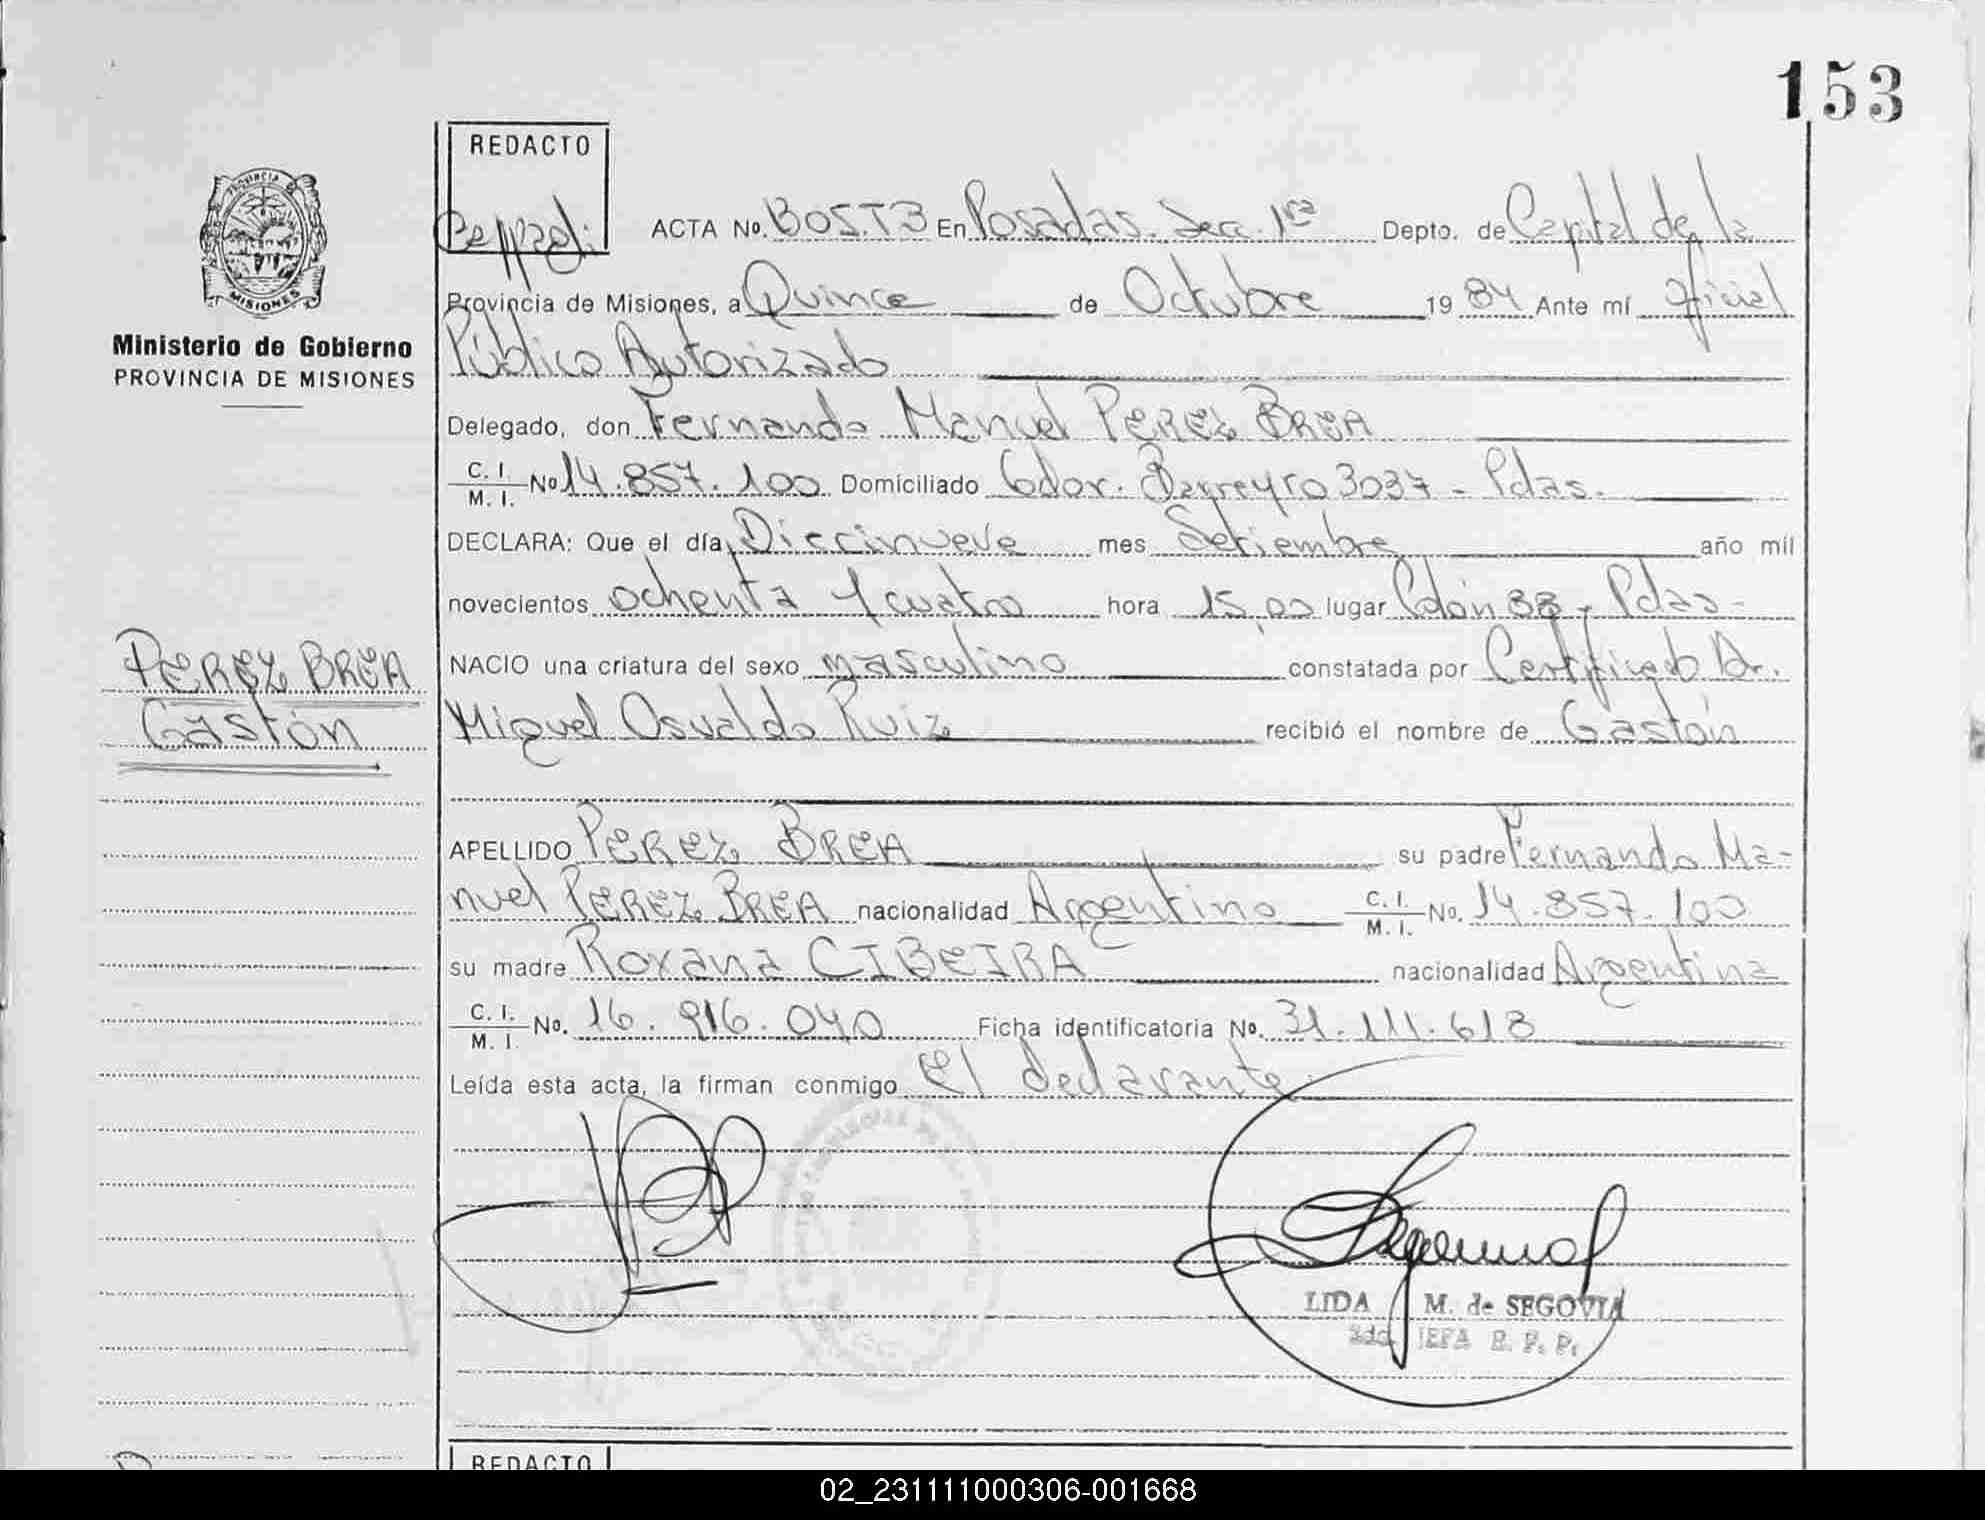 153
REDACTO
ACTA No. 805.T3 En Posadas. Secc. 1ra Depto. de Capital de la
PROVINCIA DE
MISIONES
Provincia de Misiones, a Quince de Octubre 1984 Ante mí Oficial
Ministerio de Gobierno
PROVINCIA DE MISIONES
Público Autorizado
Delegado, don Fernando Manuel PEREZ BREA
C. I. M. I. No 14.857.100 Domiciliado Gdor. Barreyro 3037 - Pdas.
DECLARA: Que el día Diecinueve mes Setiembre año mil
novecientos ochenta y cuatro hora 15,00 lugar Colón 38 - Pdas -
PEREZ BREA
NACIO una criatura del sexo masculino constatada por Certificado Dr.
Gastón
Miguel Osvaldo Ruiz recibió el nombre de Gastón
APELLIDO PEREZ BREA su padre Fernando Ma-
nuel PEREZ BREA nacionalidad Argentino C. I. M. I. No. 14.857.100
su madre Roxana CIBEIRA nacionalidad Argentina
C. I. M. I. No. 16.916.040 Ficha identificatoria No. 31.111.618
Leída esta acta, la firman conmigo El declarante
LIDA M. de SEGOVIA
2da. JEFA R. P. P.
REDACTO
02_231111000306-001668